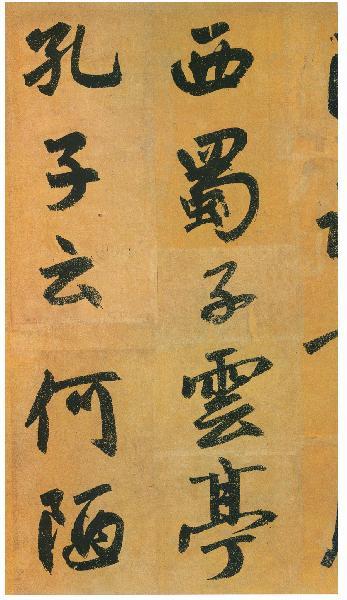 西蜀子雲亭
孔子云何陋